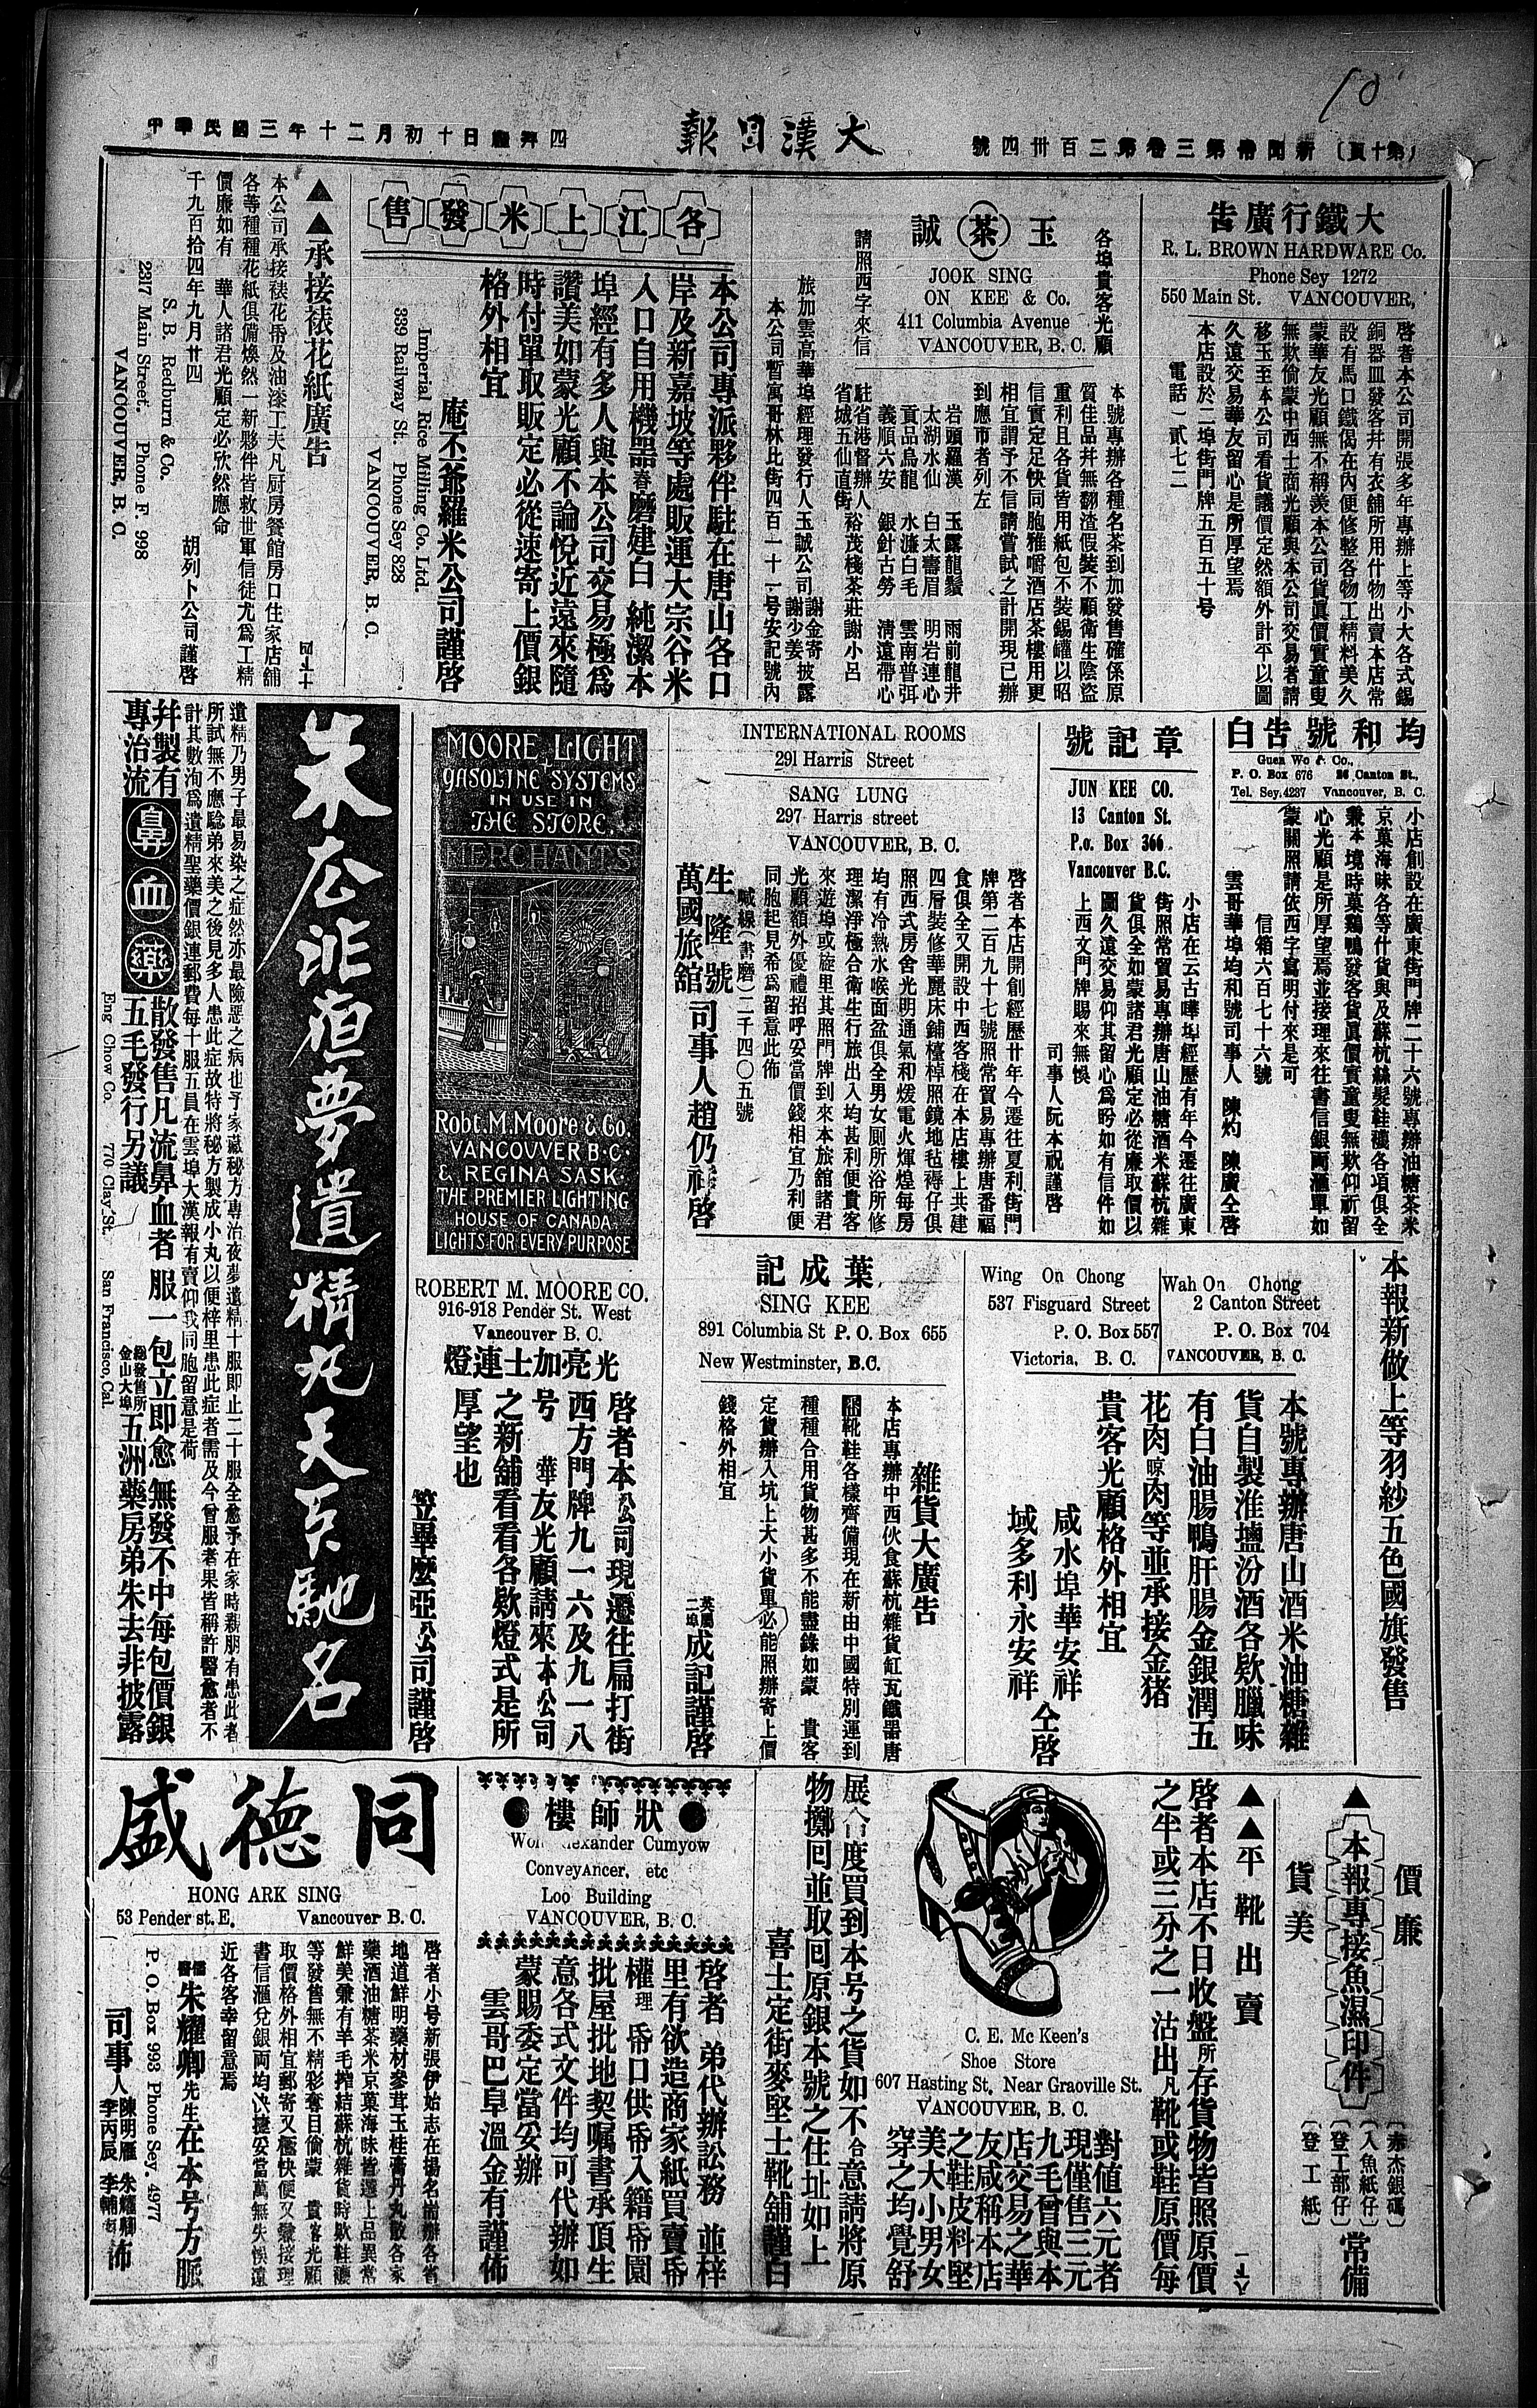 大漢日報
R. L. BROWN HARDWARE Co.
Phone Sey 1272
550 Main St. VANCOUVER,
啓者本公司開張多年專辦上等小大各式錫
銅器皿發客井有衣舖所用什物出賣本店常
設有馬口鐵偈在內便修整各物工精料美久
蒙華友光顧無不稱羨本公司貨眞價實童叟
無欺倘蒙中西士商光顧與本公司交易者請
移玉至本公司看貨議價定然額外計平以圖
久遠交易華友留心是所厚望焉
本店設於二埠街門牌五百五十号
電話一貳七二
各埠貴客光顧
玉茶誠
JOOK SING
ON KEE & Co.
411 Columbia Avenue
VANCOUVER, B. C.
請照西字來信
本號專辦各種名茶到加發售確係原
質佳品井無翻渣假裝不顧衛生陰盜
重利且各貨皆用紙包不裝錫罐以昭
信實定足快同胞雅嚼酒店茶樓用更
相宜謂予不信請嘗試之計開現已辦
到應市者列左
岩頭羅漢 玉露龍鬚 雨前龍井
太湖水仙 白太壽眉 明岩連心
貢品烏龍 水濂白毛 雲南普弭
義順六安 銀針古勞 淸遠帶心
駐省港督辦人
省城五仙直街 裕茂棧茶莊謝小呂
旅加雲高華埠經理發行人玉誠公司 謝金寄 謝少姜 披露
本公司暫寓哥林比街四百一十一号安記號內
各江上米發售
本公司專派夥伴駐在唐山各口
岸及新嘉坡等處販運大宗谷米
入口自用機器舂磨建白 純潔本
埠經有多人與本公司交易極爲
讚美如蒙光顧不論悅近遠來隨
時付單取販定必從速寄上價銀
格外相宜
庵丕爺羅米公司謹啓
Imperial Rice Milling Co. Ltd.
339 Railway St. Phone Sey 828
VANCOUVER, B. C.
▲▲承接裱花紙廣告
本公司承接裱花帋及油漆工夫凡厨房餐館房口住家店舖
各等種種花紙俱備煥然一新夥伴皆救世軍信徒尤爲工精
價廉如有 華人諸君光顧定必欣然應命
千九百拾四年九月廿四 胡列卜公司謹啓
S. B. Redburn & Co.
2317 Main Street. Phone F. 998
VANCOUVER, B. C.
均和號告白
Guen Wo & Co.,
P. O. Box 676 26 Canton St.,
Tel. Sey. 4237 Vancouver, B. C.
小店創設在廣東街門牌二十六號專辦油糖茶米
京菓海味各等什貨與及蘇杭絲髮鞋襪各項俱全
兼本境時菓鷄鴨發客貨眞價實童叟無欺仰祈留
心光顧是所厚望焉並接理來往書信銀両滙單如
蒙關照請依西字寫明付來是可
信箱六百七十六號
雲哥華埠均和號司事人 陳灼 陳廣仝啓
章記號
JUN KEE CO.
13 Canton St.
P.o. Box 366
Vancouver B.C.
小店在云古嘩埠經歷有年今遷往廣東
街照常貿易專辦唐山油糖酒米蘇杭雜
貨俱全如蒙諸君光顧定必從廉取價以
圖久遠交易仰其留心爲盼如有信件如
上西文門牌賜來無悞
司事人阮本祝謹啓
INTERNATIONAL ROOMS
291 Harris Street
SANG LUNG
297 Harris street
VANCOUVER, B. C.
啓者本店開創經歷廿年今遷往夏利街門
牌第二百九十七號照常貿易專辦唐番福
食俱全又開設中西客棧在本店樓上共建
四層裝修華麗床鋪檯棹照鏡地毡褥仔俱
照西式房舍光明通氣和煖電火煇煌每房
均有冷熱水喉面盆俱全男女厠所浴所修
理潔淨極合衛生行旅出入均甚利便貴客
來遊埠或旋里其照門牌到來本旅舘諸君
光顧額外優禮招呼妥當價錢相宜乃利便
同胞起見希爲留意此佈
喊線(書磨)二千四〇五號
生隆號
萬國旅舘 司事人趙仍謹啓
MOORE LIGHT
GASOLINE SYSTEMS
IN USE IN
THE STORE.
MERCHANTS
Robt. M. Moore & Co.
VANCOUVER B·C·
& REGINA SASK.
THE PREMIER LIGHTING
HOUSE OF CANADA.
LIGHTS FOR EVERY PURPOSE
ROBERT M. MOORE CO.
916-918 Pender St. West
Vancouver B. C.
光亮加士連燈
啓者本公司現遷往扁打街
西方門牌九一六及九一八
号 華友光顧請來本公司
之新舖看看各欵燈式是所
厚望也
笠畢麼亞公司謹啓
朱公非夜夢遺精丸天下馳名
遺精乃男子最易染之症然亦最險惡之病也予家藏秘方専治夜夢遺精十服即止二十服全愈予在家時親朋有患此者
所試無不應騐弟來美之後見多人患此症故特將秘方製成小丸以便梓里患此症者需及今曾服者果皆稱許醫愈者不
計其數洵爲遺精聖藥價銀連郵費每十服五員在雲埠大漢報有賣仰我同胞留意是荷
井製有
專治流
鼻血藥
散發售凡流鼻血者服一包立即愈無發不中每包價銀
五毛發行另議
總發售所
金山大埠 五洲藥房弟朱去非披露
Eng Chow Co. 770 Clay St. San Francisco, Cal.
本報新做上等羽紗五色國旗發售
Wah On Chong
2 Canton Street
P. O. Box 704
VANCOUVER, B. C.
Wing On Chong
537 Fisguard Street
P. O. Box 557
Victoria, B. C.
本號專辦唐山酒米油糖雜
貨自製淮塩汾酒各欵臘味
有白油腸鴨肝腸金銀潤五
花肉晾肉等並承接金猪
貴客光顧格外相宜
咸水埠華安祥
域多利永安祥 仝啓
葉成記
SING KEE
891 Columbia St P. O. Box 655
New Westminster, B.C.
雜貨大廣告
本店專辦中西伙食蘇杭雜貨缸瓦鐵器唐
靴鞋各樣齊備現在新由中國特別運到
種種合用貨物甚多不能盡錄如蒙 貴客
定貨辦入坑上大小貨單必能照辦寄上價
錢格外相宜
英屬
二埠 成記謹啓
價廉
▲本報專接魚濕印件
貨美
(赤杰銀碼)
(入魚紙仔)
(登工部仔)
(登工紙)
常備
▲▲平靴出賣
啓者本店不日收盤所存貨物皆照原價
之半或三分之一沽出凡靴或鞋原價每
C. E. Mc Keen's
Shoe Store
607 Hasting St. Near Graoville St.
VANCOUVER, B. C.
對值六元者
現僅售三元
九毛曾與本
店交易之華
友咸稱本店
之鞋皮料堅
美大小男女
穿之均覺舒
展合度買到本号之貨如不合意請將原
物擲囘並取囘原銀本號之住址如上
喜士定街麥堅士靴舖謹白
狀師樓
Won Alexander Cumyow
Conveyancer, etc
Loo Building
VANCOUVER, B. C.
啓者 弟代辦訟務 並梓
里有欲造商家紙買賣帋
權理 帋口供帋入籍帋園
批屋批地契嘱書承頂生
意各式文件均可代辦如
蒙賜委定當妥辦
雲哥巴阜溫金有謹佈
同德盛
HONG ARK SING
53 Pender st. E. Vancouver B. C.
啓者小号新張伊始志在揚名耑辦各省
地道鮮明藥材參茸玉桂膏丹丸散各家
藥酒油糖茶米京菓海味皆選上品異常
鮮美兼有羊毛搾結蘇杭雜貨時欵鞋襪
等發售無不精彩奪目倘蒙 貴客光顧
取價格外相宜郵寄又極快便又兼接理
書信滙兌銀両均快捷妥當萬無失悞遠
近各客幸留意焉
儒醫朱耀卿先生在本号方脈
P. O. Box 993 Phone Sey. 4977
司事人 陳明雁 朱耀卿 李丙辰 李輔 佈